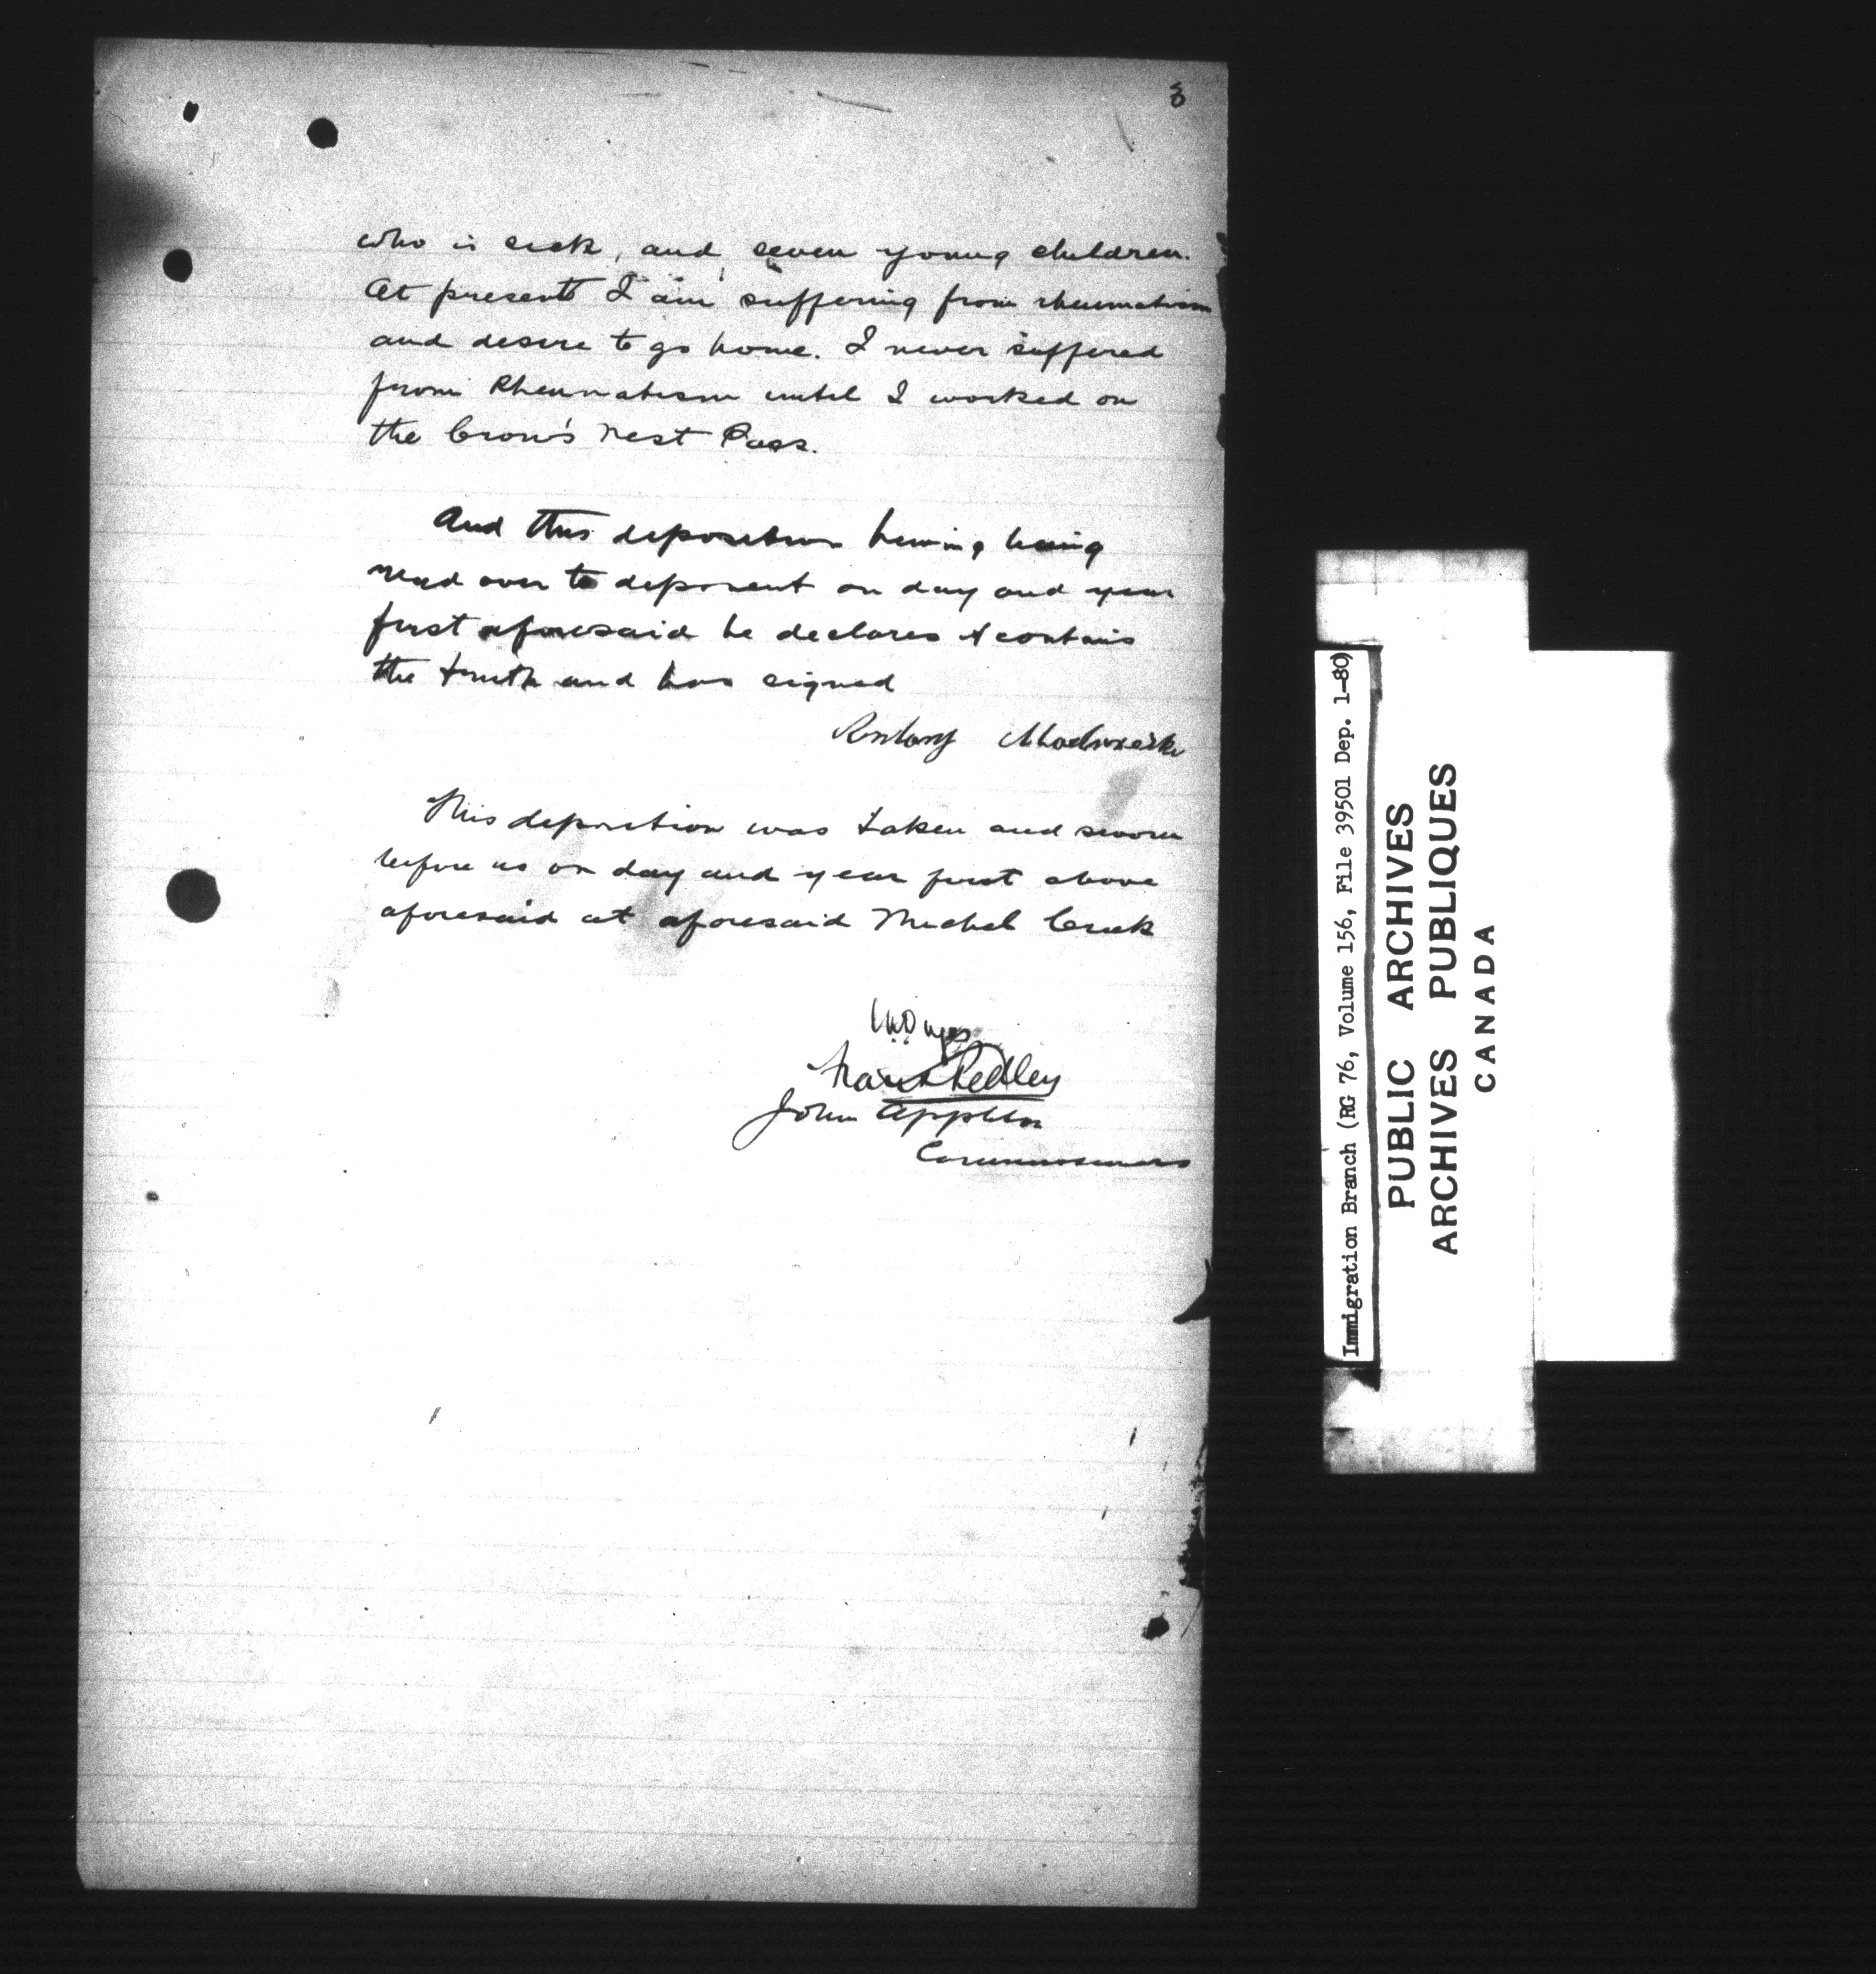 3
who is sick, and seven young children.
At present I am suffering from rheumatism
and desire to go home. I never suffered
from Rheumatism until I worked on
the Crow's Nest Pass.
And this deposition having being
read over to deponent on day and year
first aforesaid he declares it contains
the truth and has signed
Antony
This deposition was taken and sworn
before us on day and year first above
aforesaid at aforesaid Michel Creek
Frank Pedley
John Appleton
Commissioners
Immigration Branch (RG 76, Volume 156, File 39501 Dep. 1-80)
PUBLIC ARCHIVES
ARCHIVES PUBLIQUES
CANADA